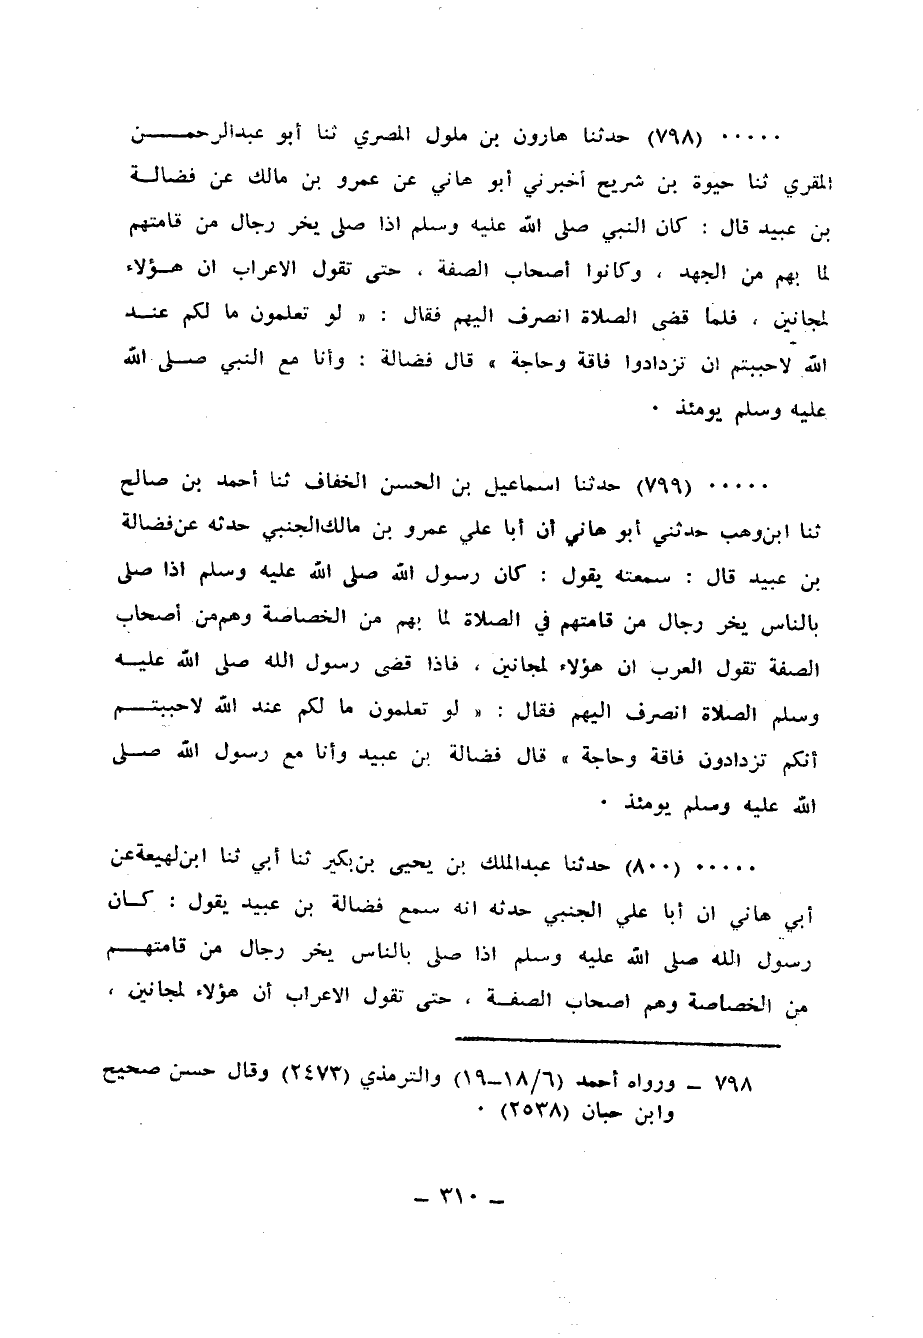 ٠٠٠٠٠ (٧٩٨) حدثنا هارون بن ملول المصري ثنا أبو عبدالرحمـــــن
المقري ثنا حيوة بن شريح أخبرني أبو هاني عن عمرو بن مالك عن فضالـة
بن عبيد قال : كان النبي صلى الله عليه وسلم اذا صلى يخر رجال من قامتهم
لما بهم من الجهد ، وكانوا أصحاب الصفة ، حتى تقول الاعراب ان هـؤلاء
لمجانين ، فلما قضى الصلاة انصرف اليهم فقال : « لو تعلمون ما لكم عنـد
الله لاحببتم ان تزدادوا فاقة وحاجة » قال فضالة : وأنا مع النبي صـلى الله
عليه وسلم يومئذ ٠
٠٠٠٠٠ (٧٩٩) حدثنا اسماعيل بن الحسن الخفاف ثنا أحمد بن صالح
ثنا ابن وهب حدثني أبو هاني أن أبا علي عمرو بن مالك الجنبي حدثه عن فضالة
بن عبيد قال : سمعته يقول : كان رسول الله صلى الله عليه وسلم اذا صلى
بالناس يخر رجال من قامتهم في الصلاة لما بهم من الخصاصة وهم من أصحاب
الصفة تقول العرب ان هؤلاء لمجانين ، فاذا قضى رسول الله صلى الله عليـه
وسلم الصلاة انصرف اليهم فقال : « لو تعلمون ما لكم عند الله لاحببتـــم
أنكم تزدادون فاقة وحاجة » قال فضالة بن عبيد وأنا مع رسول الله صـلى
الله عليه وسلم يومئذ ٠
٠٠٠٠٠ (٨٠٠) حدثنا عبدالملك بن يحيى بن بكير ثنا أبي ثنا ابن لهيعة عن
أبي هاني ان أبا علي الجنبي حدثه انه سمع فضالة بن عبيد يقول : كـان
رسول الله صلى الله عليه وسلم اذا صلى بالناس يخر رجال من قامتهـــم
من الخصاصة وهم اصحاب الصفـة ، حتى تقول الاعراب أن هؤلاء لمجانين ،
٧٩٨ ــ ورواه أحمد (٦/١٨ــ١٩) والترمذي (٢٤٧٣) وقال حسن صحيح
وابن حبان (٢٥٣٨) ٠
ــ ٣١٠ ــ